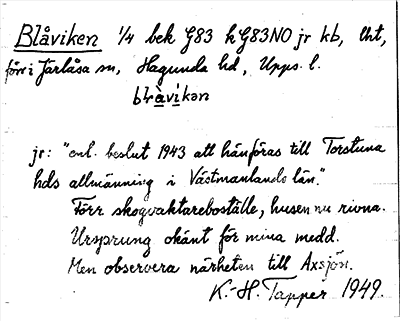 Blåviken 1/4 bek G83 k G83NO jr kb, Uht,
förr i Järlåsa sn, Hagunda hd, Upps. l.
blàvìkən
jr: "enl. beslut 1943 att hänföras till Torstuna
hds allmänning i Västmanlands län."
Förr skogvaktareboställe, husen nu rivna.
Ursprung okänt för mina medd.
Men observera närheten till Axsjön.
K.-H. Tapper 1949.